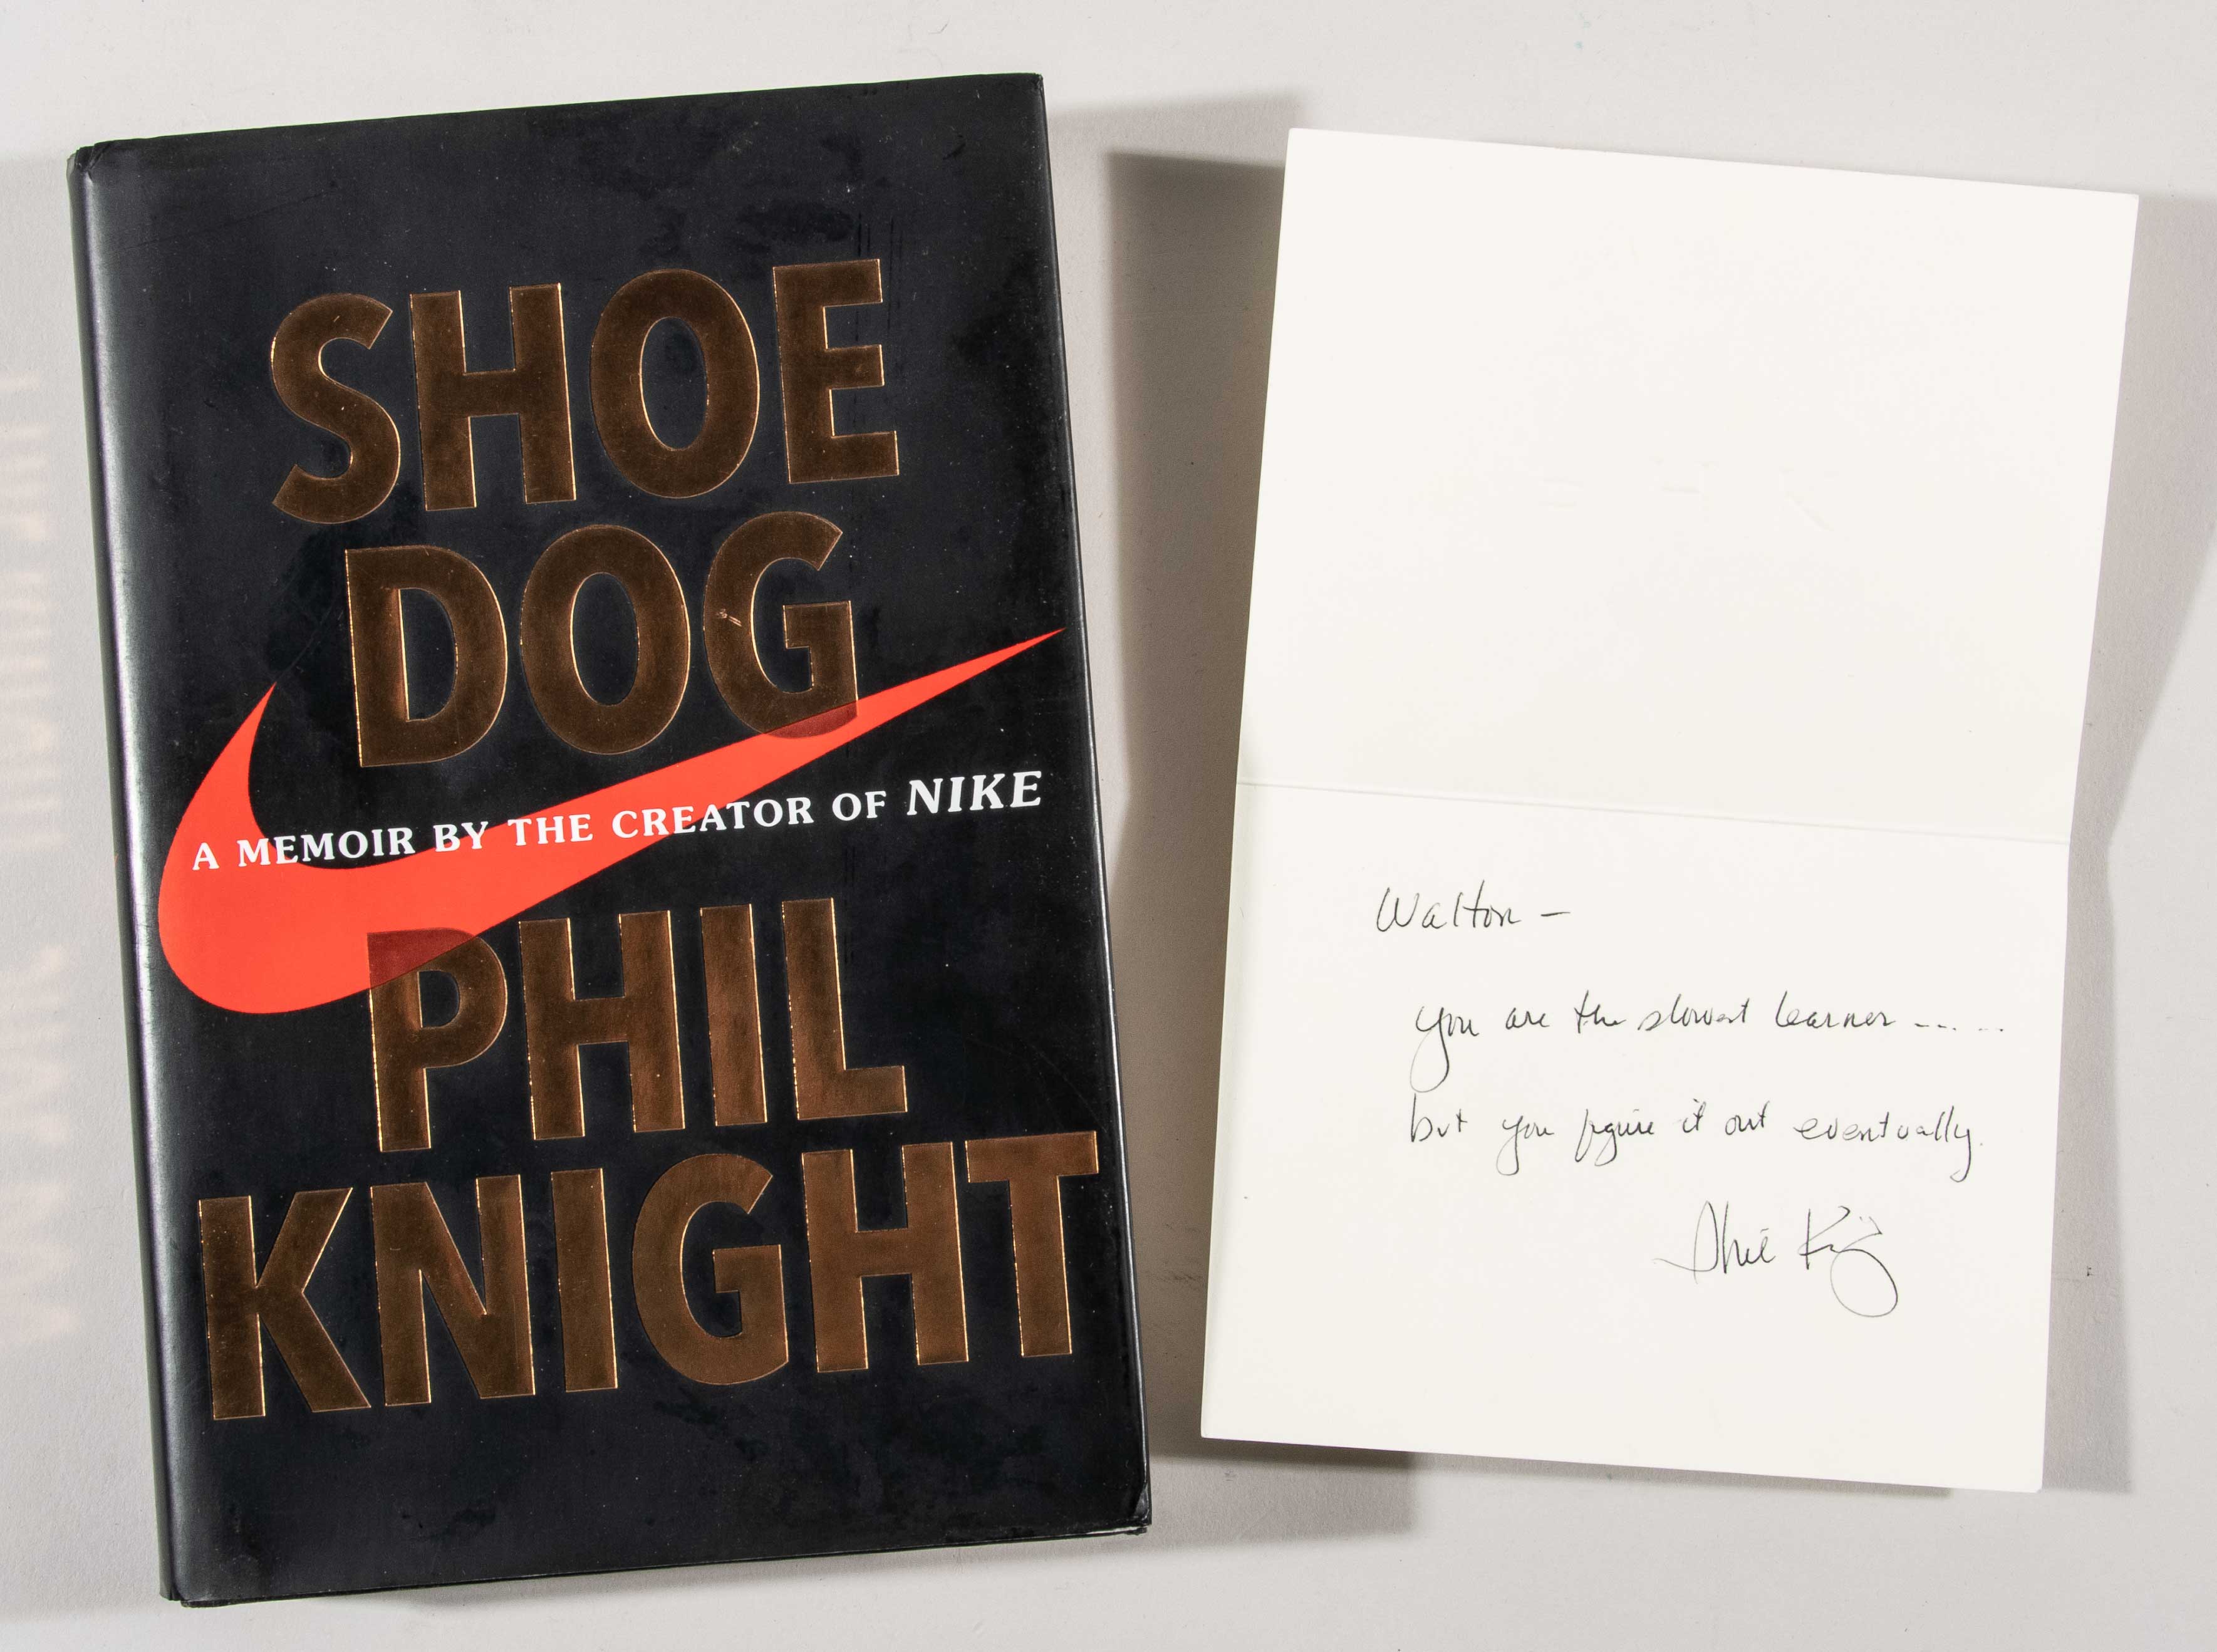 SHOE
DOG
A MEMOIR BY THE CREATOR OF NIKE
PHIL
KNIGHT
Walton —
you are the slowest learner .....
but you figure it out eventually.
Phil Knight